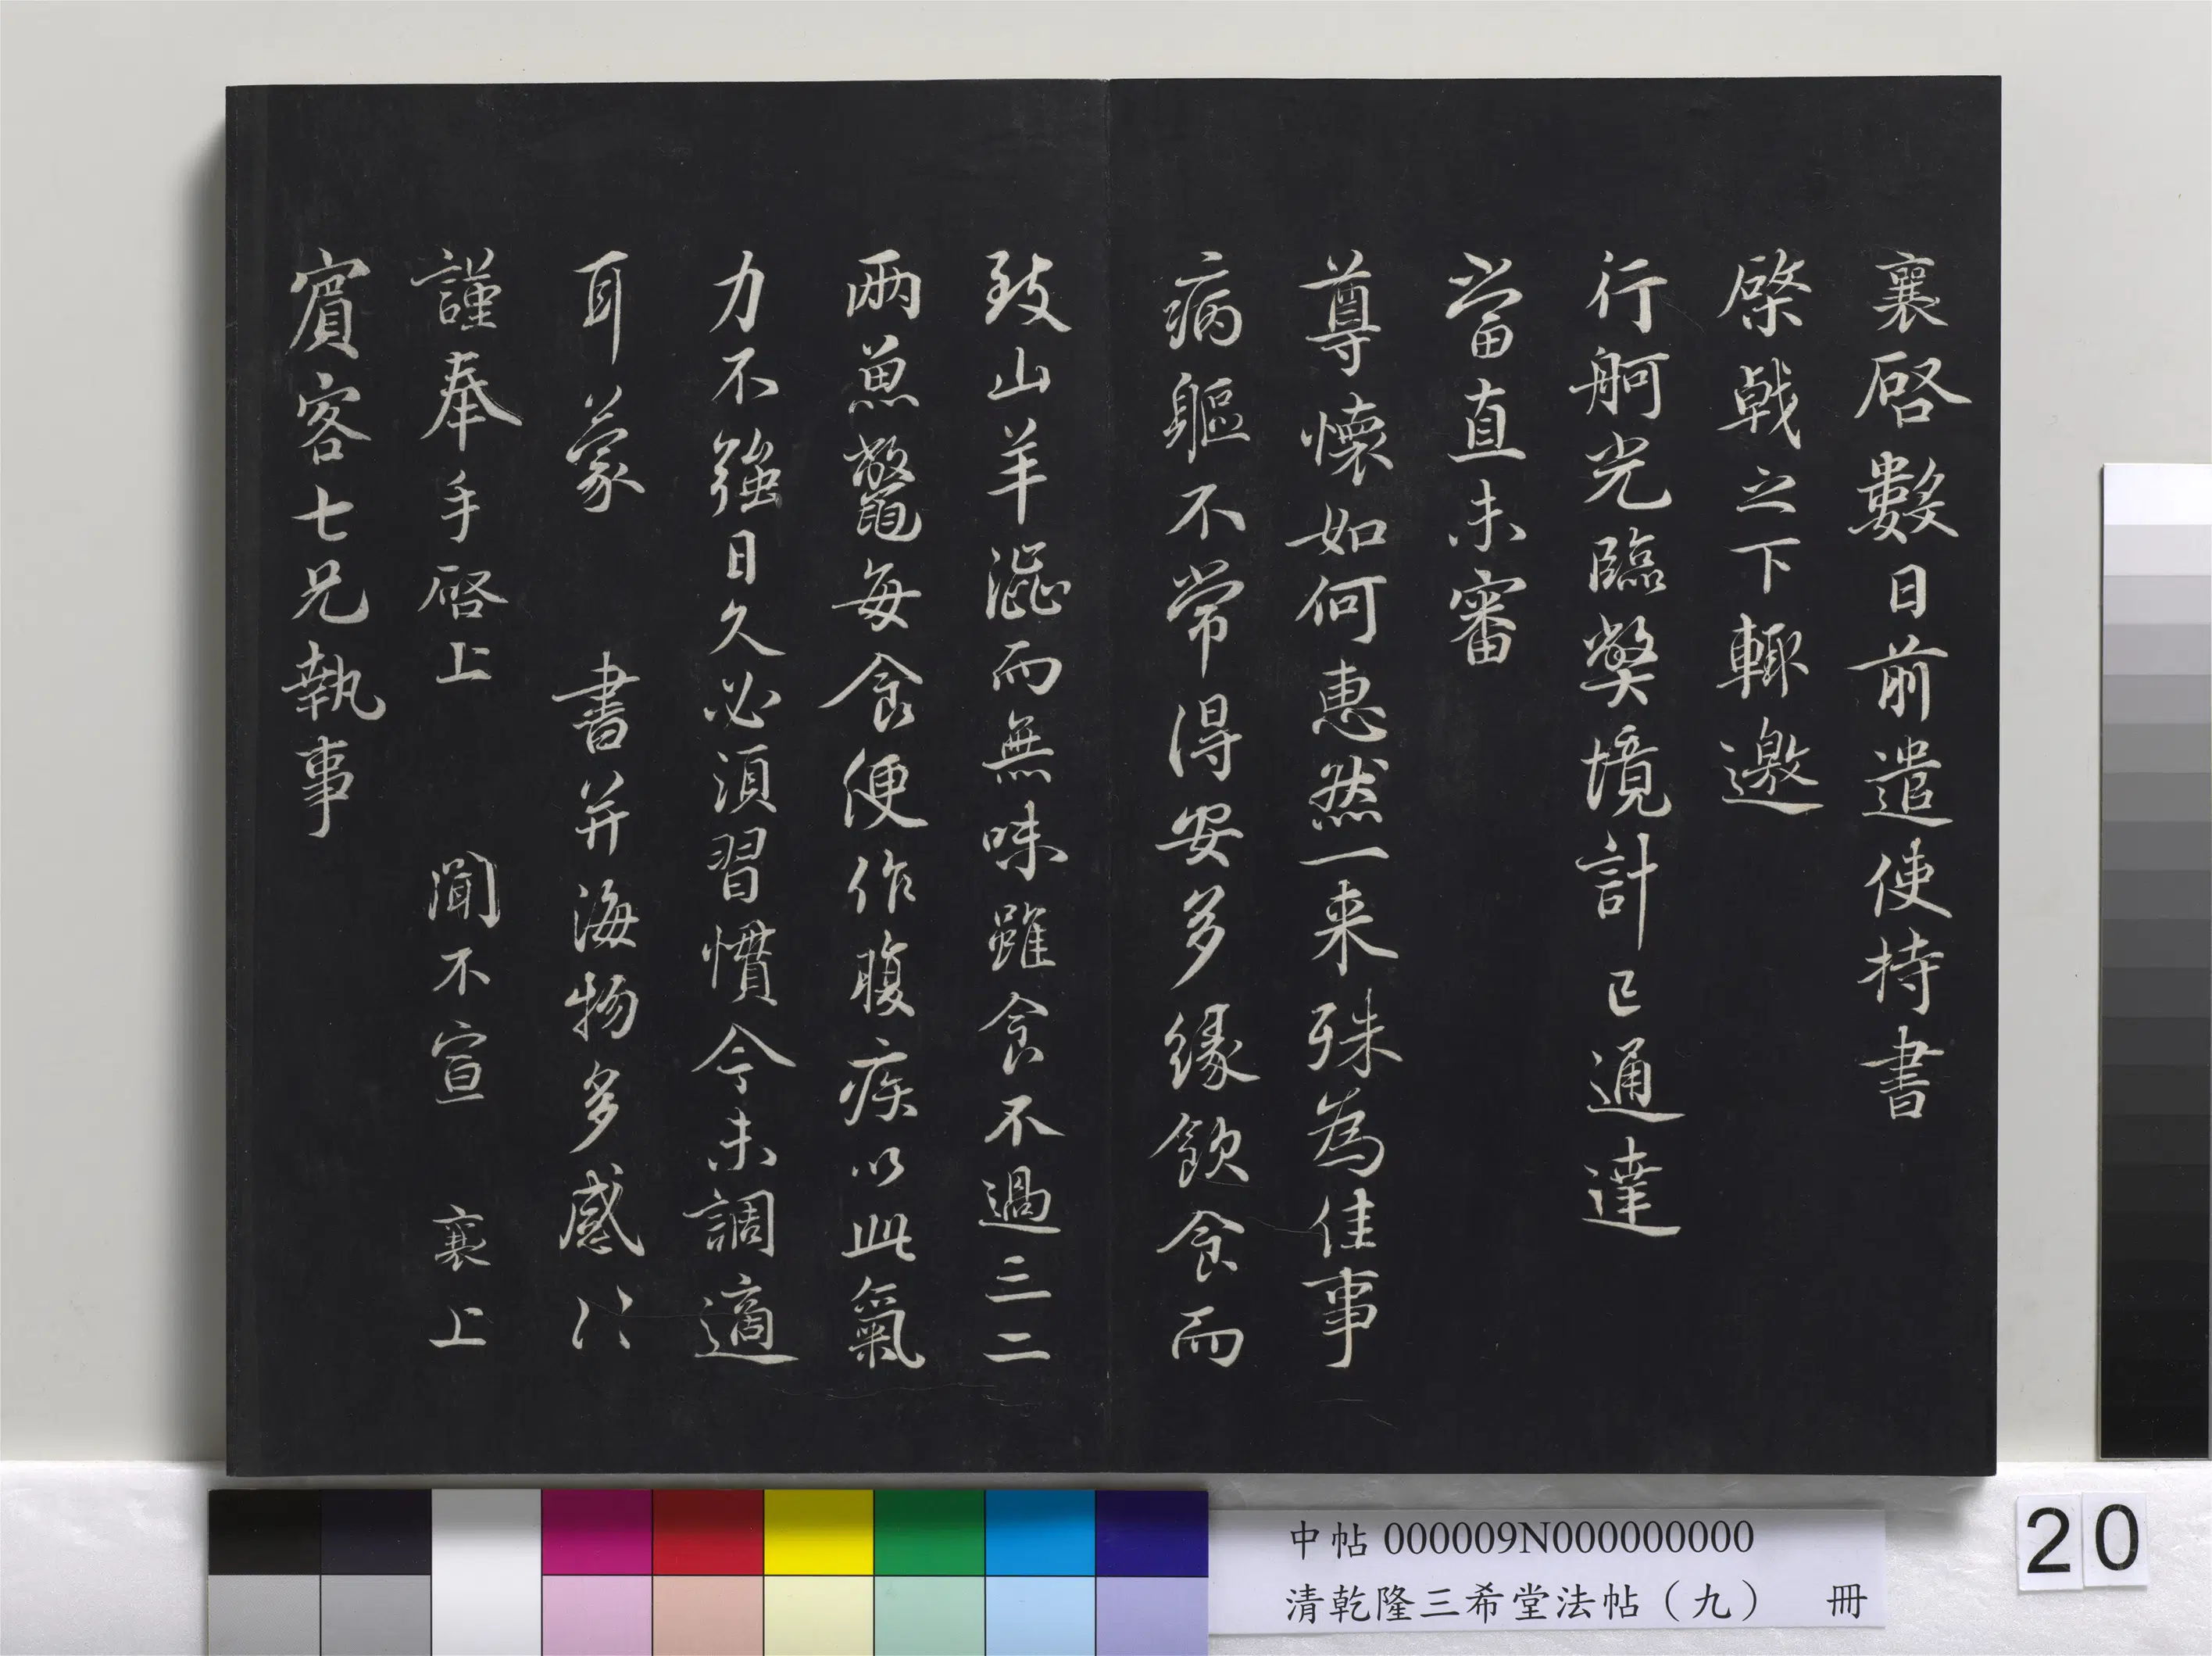 襄啓數日前遣使持書
棨戟之下輙邀
行舸光臨弊境計已通達
當直未審
尊懷如何惠然一来殊為佳事
病軀不常得安多緣飲食而
致山羊澀而無味雖食不過三二
兩魚鼈每食便作腹疾以此氣
力不強日久必須習慣今未調適
耳蒙 書并海物多感〻〻
謹奉手啓上 聞不宣 襄上
賓客七兄執事
中帖 000009N000000000
清乾隆三希堂法帖（九） 冊
20